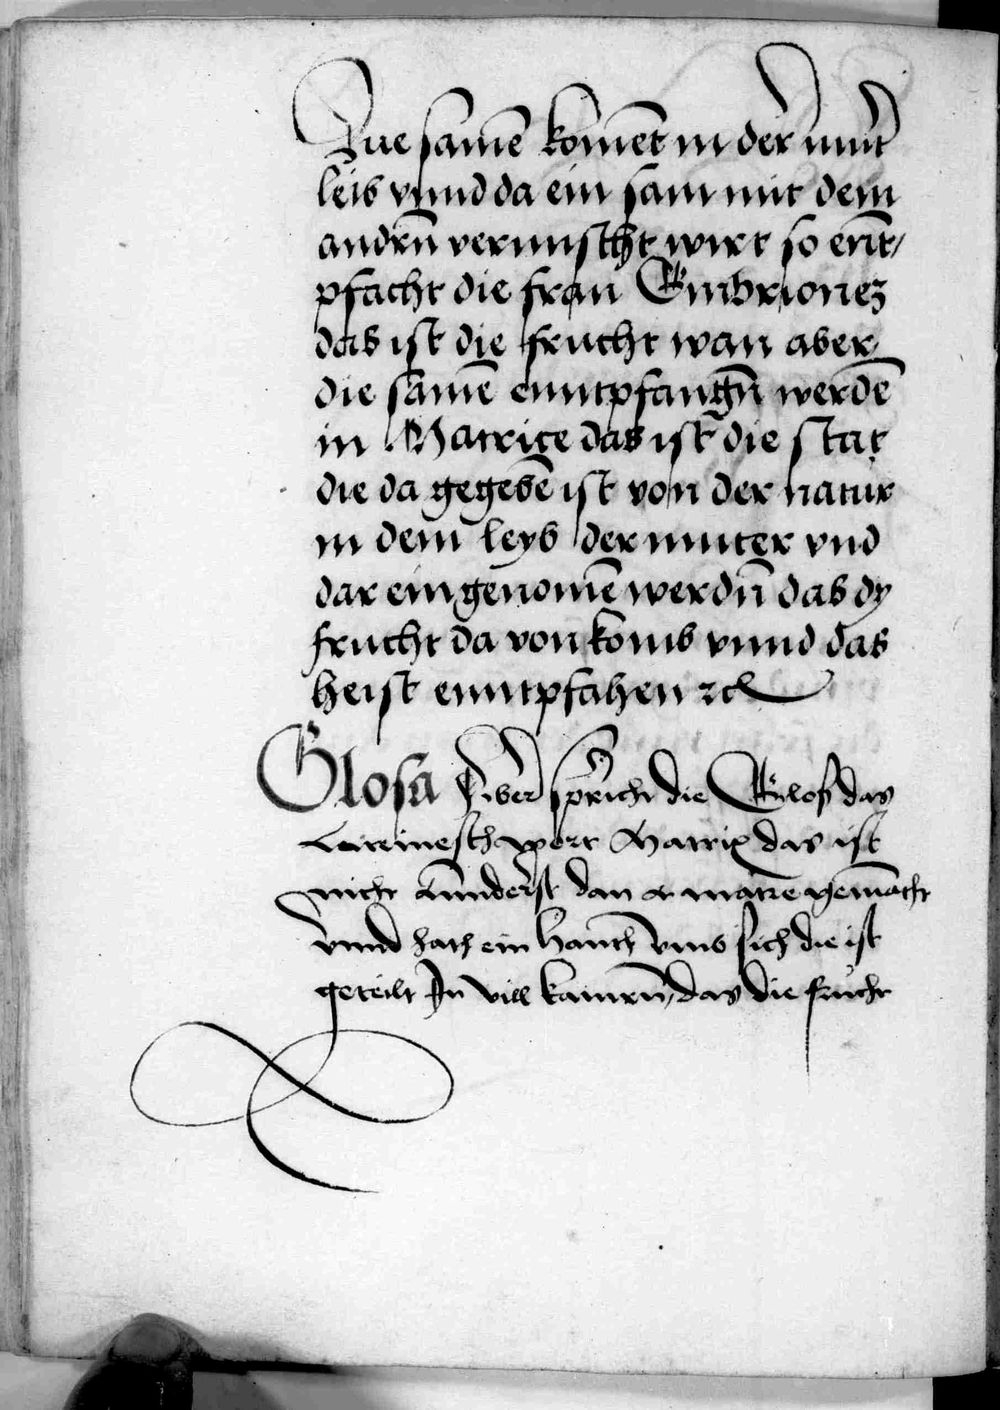 Die samē komēt in der mut̄
leib vnnd da ein sam mit dem
andrn̄ vermischt wirt so ent/
pfacht die frau Embrionez
das ist die frucht wan aber
die samē enntpfangn̄ werdē
in Matrice das ist die stat
die da gegebē ist von der natur
in dem leyb der muter vnd
dar ein genomē werdn̄ das dy
frucht da von komb vnnd das
heist enntpfahen ⁊c
Glosa Hiber spricht die Glos das
Lateinesch wort Matrix das ist
nicht annderst dan matre gemacht
vnnd hath ein hauth vmb sich die ist
geteilt In vill kamrn̄/das die frucht